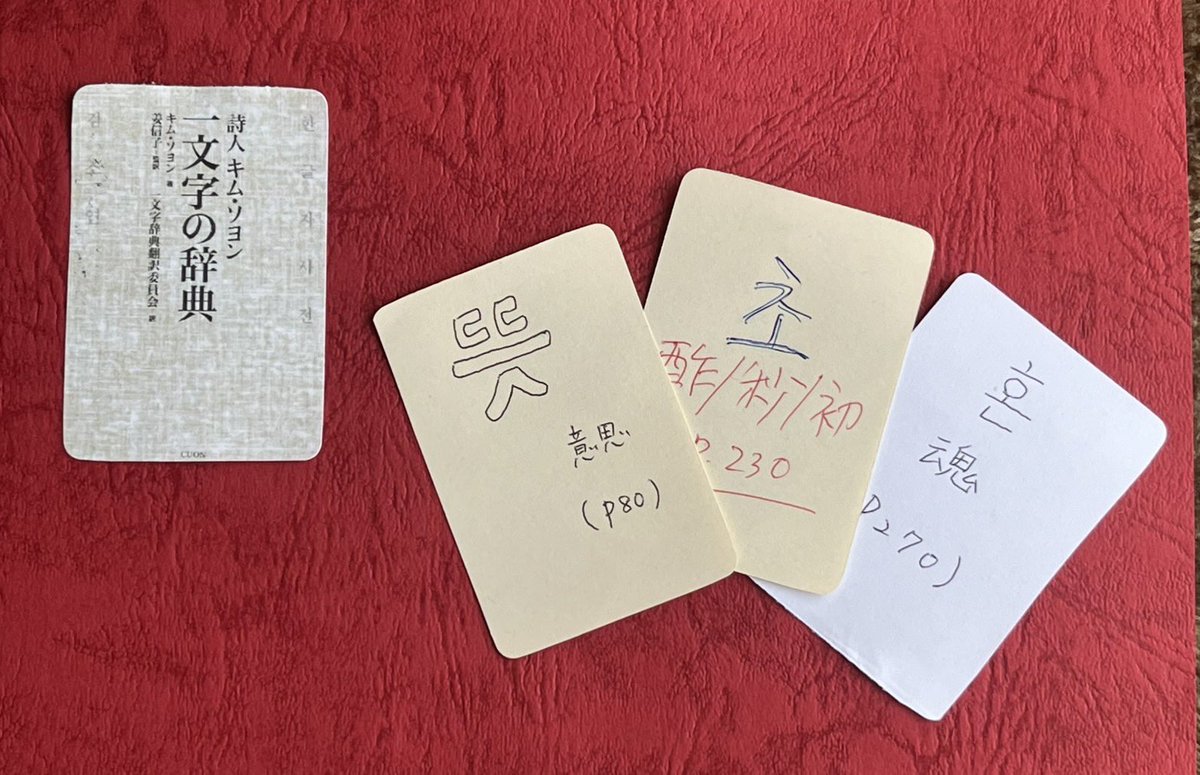 한글자사전
詩人 キム・ソヨン
一文字の辞典
キム・ソヨン 著
姜信子 監訳
一文字辞典翻訳委員会 訳
CUON
뜻
意思
(P80)
초
酢/秒/初
P.230
혼
魂
P270)